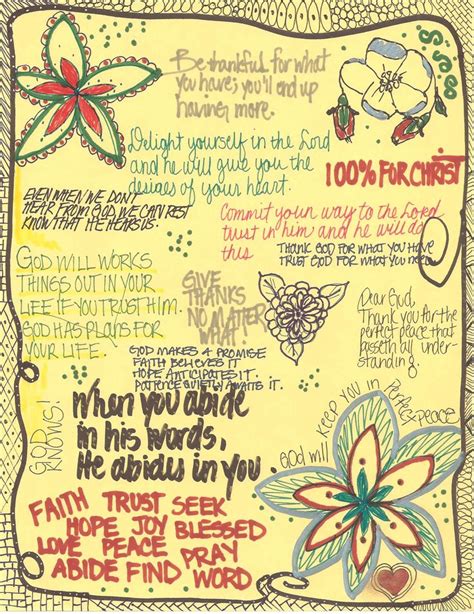 Be thankful for what
you have; you'll end up
having more.
Delight yourself in the Lord
and he will give you the
desires of your heart.
100% FOR CHRIST
EVEN WHEN WE DON'T
HEAR FROM GOD, WE CAN REST
KNOW THAT HE HEARS US.
Commit your way to the Lord
trust in him and he will do
this
THANK GOD FOR WHAT YOU HAVE
TRUST GOD FOR WHAT YOU
GOD WILL WORKS
THINGS OUT IN YOUR
LIFE IF YOU TRUST HIM.
GOD HAS PLANS FOR
YOUR LIFE.
GIVE
THANKS
NO MATTER
WHAT!
Dear God,
Thank you for the
perfect peace that
passeth all under-
standing.
GOD MAKES A PROMISE
FAITH BELIEVES IT
HOPE ANTICIPATES IT.
PATIENCE QUIETLY AWAITS IT.
GOD
KNOWS!
When you abide
in his words,
He abides in you.
God will KEEP YOU IN Perfect peace
FAITH TRUST SEEK
HOPE JOY BLESSED
LOVE PEACE PRAY
ABIDE FIND WORD